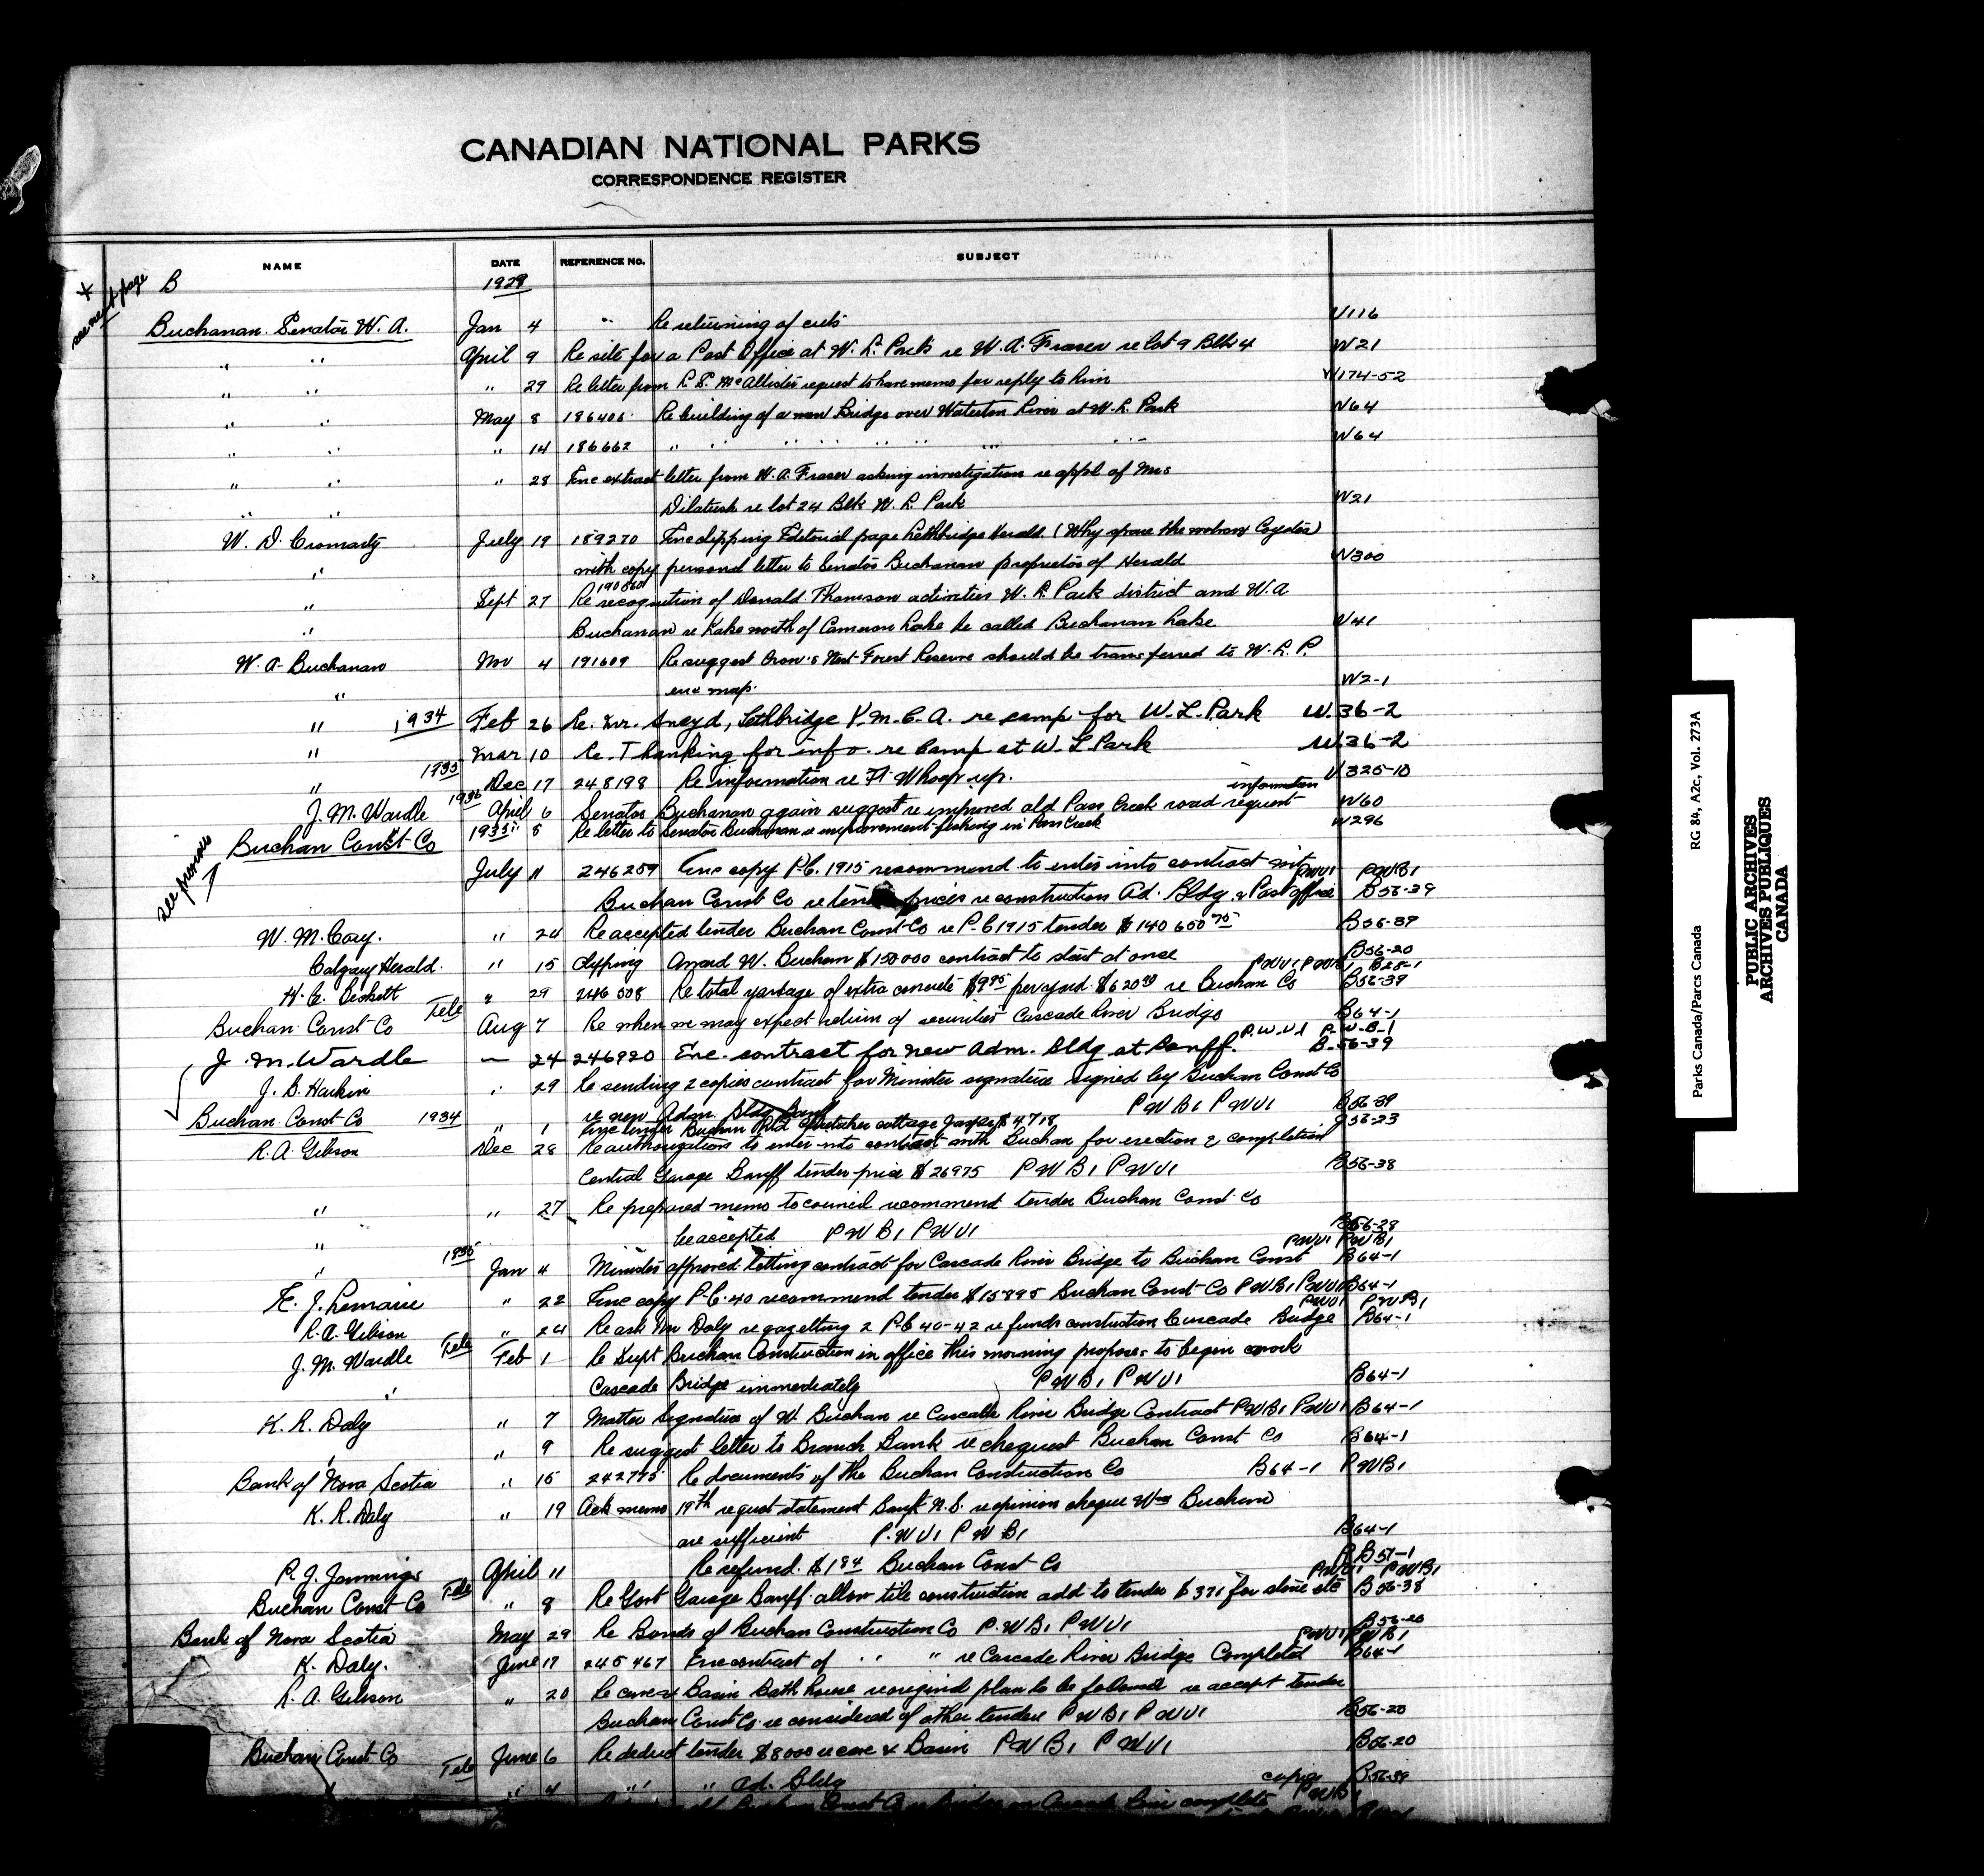 CANADIAN NATIONAL PARKS
CORRESPONDENCE REGISTER
NAME DATE REFERENCE No. SUBJECT
* see next page
B 1929
Buchanan. Senator W. A. Jan 4 " Re returning of cuts W116
" " April 9 Re site for a Post Office at W. L. Park re W. A. Fraser re lot 9 Blk 4 W21
" " " 29 Re letter from R. S. McAllister request to have memo for reply to him W174-52
" " May 8 186406 Re building of a new Bridge over Waterton River at W. L. Park W64
" " " 14 186662 " " " " " " " " W64
" " " 28 Enc extract letter from W. A. Fraser asking investigation re appl of Mrs
" " Dilatush re lot 24 Blk W. L. Park W21
W. D. Cromarty July 19 189270 Enc clipping Editorial page Lethbridge Herald. (Why spare the Coyotes)
" with copy personal letter to Senator Buchanan proprietor of Herald W300
" Sept 27 Re recognition of Donald Thomson activities W. L. Park district and W. A
" Buchanan re Lake north of Cameron Lake be called Buchanan Lake W41
W. A. Buchanan Nov 4 191609 Re suggest Crow's Nest Forest Reserve should be transferred to W. L. P.
" enc map. W2-1
" 1934 Feb 26 Re. Mr. Sneyd, Lethbridge Y.M.C.A. re camp for W. L. Park W.36-2
" Mar 10 Re. Thanking for info. re Camp at W. L Park W.36-2
" 1935 Dec 17 248198 Re information re Ft Whoop-up. U325-10
J. M. Wardle 1936 April 6 Senator Buchanan again suggest re improved old Pass Creek road request information W60
1933 " 8 Re letter to Senator Buchanan re improvement fishing in Pass Creek W296
see previous
Buchan Const Co
July 11 246259 Enc copy P.C. 1915 recommend to enter into contract with PWU1 PWB1
Buchan Const Co re tender prices re construction Ad. Bldg. & Post office B56-39
W. M. Cory. " 24 Re accepted tender Buchan Const Co re P.C 1915 tender $140 650 75 B56-39
Calgary Herald. " 15 clipping Award W. Buchan $150 000 contract to start at once B56-20
PWU1 PWB1 B28-1
H. C. Beckett " 29 246508 Re total yardage of extra concrete per yard $620 00 re Buchan Co B56-39
Buchan Const Co Tele Aug 7 Re when we may expect return of securities Cascade River Bridge B64-1
P.W.U1 P-W-B-1
J. M. Wardle — 24 246920 Enc. contract for new Adm. Bldg at Banff. B.56-39
J. B. Harkin " 29 Re sending 2 copies contract for Minister signature signed by Buchan Const Co
re new Adm. Bldg Banff PWB1 PWU1 B56-39
Buchan Const Co 1934 " 1 Enc tender Buchan cottage Jasper $4718 J56-23
R. A. Gibson Dec 28 Re authorization to enter into contract with Buchan for erection & completion
Central Garage Banff tender price $26975 PWB1 PWU1 B56-38
" " 27 Re prepared memo to council recommend tender Buchan Const Co
" be accepted PWB1 PWU1 B56-29
PWU1 PWB1
" 1935 Jan 4 Minister approved letting contract for Cascade River Bridge to Buchan Const B64-1
F. J. Lemaire " 22 Enc copy P.C. 40 recommend tender $15895 Buchan Const Co PWB1 PWU1 B64-1
PWU1 PWB1
R. A. Gibson " 24 Re ask Mr Daly re gazetting 2 P.C 40-42 re funds construction Cascade Bridge B64-1
J. M. Wardle Tele Feb 1 Re Supt Buchan Construction in office this morning propose to begin work
" Cascade Bridge immediately PWB1 PWU1 B64-1
K. R. Daly " 7 Matter signature of W. Buchan re Cascade River Bridge Contract PWB1 PWU1 B64-1
" " 9 Re suggest letter to Branch Bank re cheques Buchan Const Co B64-1
Bank of Nova Scotia " 15 242775 Re documents of the Buchan Construction Co B64-1 PWB1
K. R. Daly " 19 Ack memo 19th request statement Bank N.S. re opinion cheque Wm Buchan
are sufficient P.WU1 PWB1 B64-1
P. J. Jennings April 11 Re refund. $184 Buchan Const Co B57-1
PWU1 PWB1
Buchan Const Co Tele " 8 Re Govt Garage Banff allow tile construction add to tender $371 for stone etc B56-38
Bank of Nova Scotia May 29 Re Bonds of Buchan Construction Co P.WB1 PWU1 B56-20
PWU1 PWB1
K. Daly. June 17 245467 Enc contract of " " re Cascade River Bridge Completed B64-1
R. A. Gibson " 20 Re cave & Basin Bath house re original plan to be followed re accept tender
Buchan Const Co re considered of other tenders PWB1 PWU1 B56-20
Buchan Const Co Tele June 6 Re deduct tender $8000 re cave & Basin PWB1 PWU1 B56-20
" 4 " " Ad. Bldg copies B56-39
PWB1
Parks Canada/Parcs Canada RG 84, A2c, Vol. 273A
PUBLIC ARCHIVES
ARCHIVES PUBLIQUES
CANADA